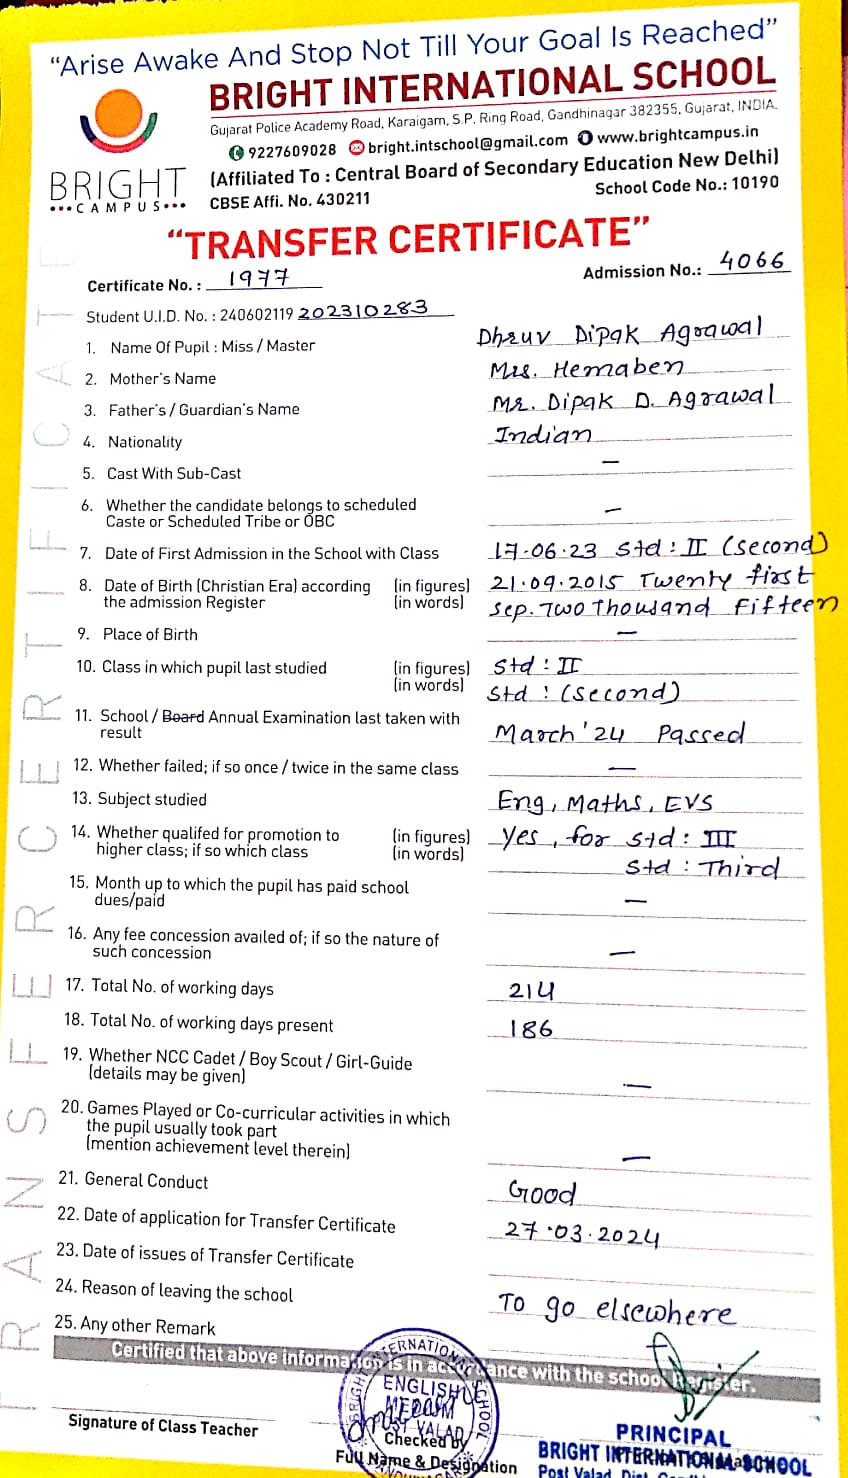 "Arise Awake And Stop Not Till Your Goal Is Reached"
BRIGHT INTERNATIONAL SCHOOL
Gujarat Police Academy Road, Karaigam, S.P. Ring Road, Gandhinagar 382355, Gujarat, INDIA.
9227609028 bright.intschool@gmail.com www.brightcampus.in
BRIGHT
CAMPUS
(Affiliated To : Central Board of Secondary Education New Delhi)
CBSE Affi. No. 430211 School Code No.: 10190
"TRANSFER CERTIFICATE"
Certificate No. : 1977 Admission No.: 4066
Student U.I.D. No. : 240602119 202310283
1. Name Of Pupil : Miss / Master Dhruv Dipak Agrawal
2. Mother's Name Mrs. Hemaben
3. Father's / Guardian's Name Mr. Dipak D. Agrawal
4. Nationality Indian
5. Cast With Sub-Cast —
6. Whether the candidate belongs to scheduled
Caste or Scheduled Tribe or OBC —
7. Date of First Admission in the School with Class 17.06.23 Std : II (Second)
8. Date of Birth (Christian Era) according (in figures) 21.09.2015 Twenty first
the admission Register (in words) Sep. Two Thousand Fifteen
9. Place of Birth —
10. Class in which pupil last studied (in figures) Std : II
(in words) Std : (Second)
11. School / Board Annual Examination last taken with
result March '24 Passed
12. Whether failed; if so once / twice in the same class —
13. Subject studied Eng, Maths, EVS
14. Whether qualifed for promotion to (in figures) Yes, for Std : III
higher class; if so which class (in words) Std : Third
15. Month up to which the pupil has paid school
dues/paid —
16. Any fee concession availed of; if so the nature of
such concession —
17. Total No. of working days 214
18. Total No. of working days present 186
19. Whether NCC Cadet / Boy Scout / Girl-Guide
(details may be given) —
20. Games Played or Co-curricular activities in which
the pupil usually took part
(mention achievement level therein) —
21. General Conduct Good
22. Date of application for Transfer Certificate 27.03.2024
23. Date of issues of Transfer Certificate
24. Reason of leaving the school To go elsewhere
25. Any other Remark
Certified that above information is in accordance with the school Register.
BRIGHT INTERNATIONAL SCHOOL
ENGLISH
MEDIUM
POST VALAD
Signature of Class Teacher
Checked by
Full Name & Designation
PRINCIPAL
BRIGHT INTERNATIONAL SCHOOL
Post Valad, Dist.
TRANSFER CERTIFICATE